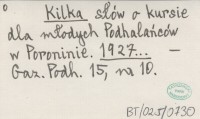 Kilka słów o kursie
dla młodych Podhalańców
w Poroninie. 1927... –
Gaz. Podh. 15, nr 10.
BT/025/0730